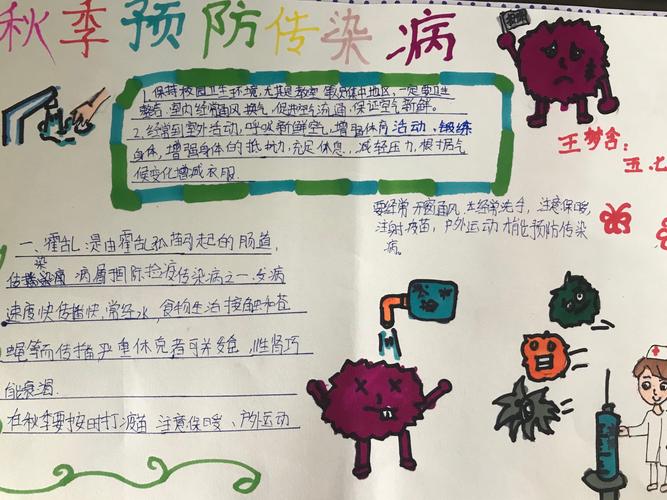 秋季预防传染病
1.保持校园卫生环境,尤其是教室、等人集中地区,一定要卫生
整齐,室内经常通风换气,促进空气流通,保证空气新鲜。
2.经常到室外活动,呼吸新鲜空气,增强体育活动、锻练
身体,增强身体的抵抗力,充足休息、减轻压力,根据气
候变化增减衣服.
王梦舍:
五.七
要经常开窗通风、
注射疫苗,户外运动才能预防传染
病。
一、霍乱:是由霍乱弧菌引起的肠道
染病属国际检疫传染病之一,发病
速度快传播快,常经水,食物生活接触和苍
蝇等而传播严重休克者可并发症,性肾巧
能衰渴.
在秋季要按时打疫苗 注意保暖、户外运动